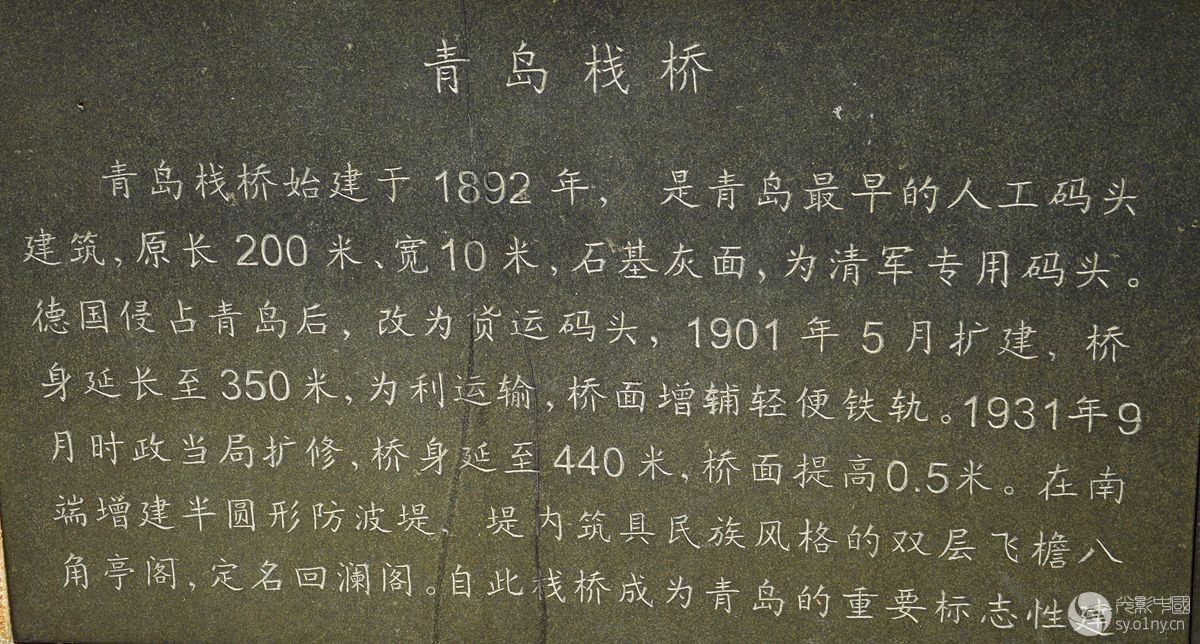 青岛栈桥
青岛栈桥始建于1892年，是青岛最早的人工码头
建筑，原长200米、宽10米，石基灰面，为清军专用码头。
德国侵占青岛后，改为贷运码头，1901年5月扩建，桥
身延长至350米，为利运输，桥面增辅轻便铁轨。1931年9
月时政当局扩修，桥身延至440米，桥面提高0.5米。在南
端增建半圆形防波堤、堤内筑具民族风格的双层飞檐八
角亭阁，定名回澜阁。自此栈桥成为青岛的重要标志性建
光影中国
sy.o1ny.cn